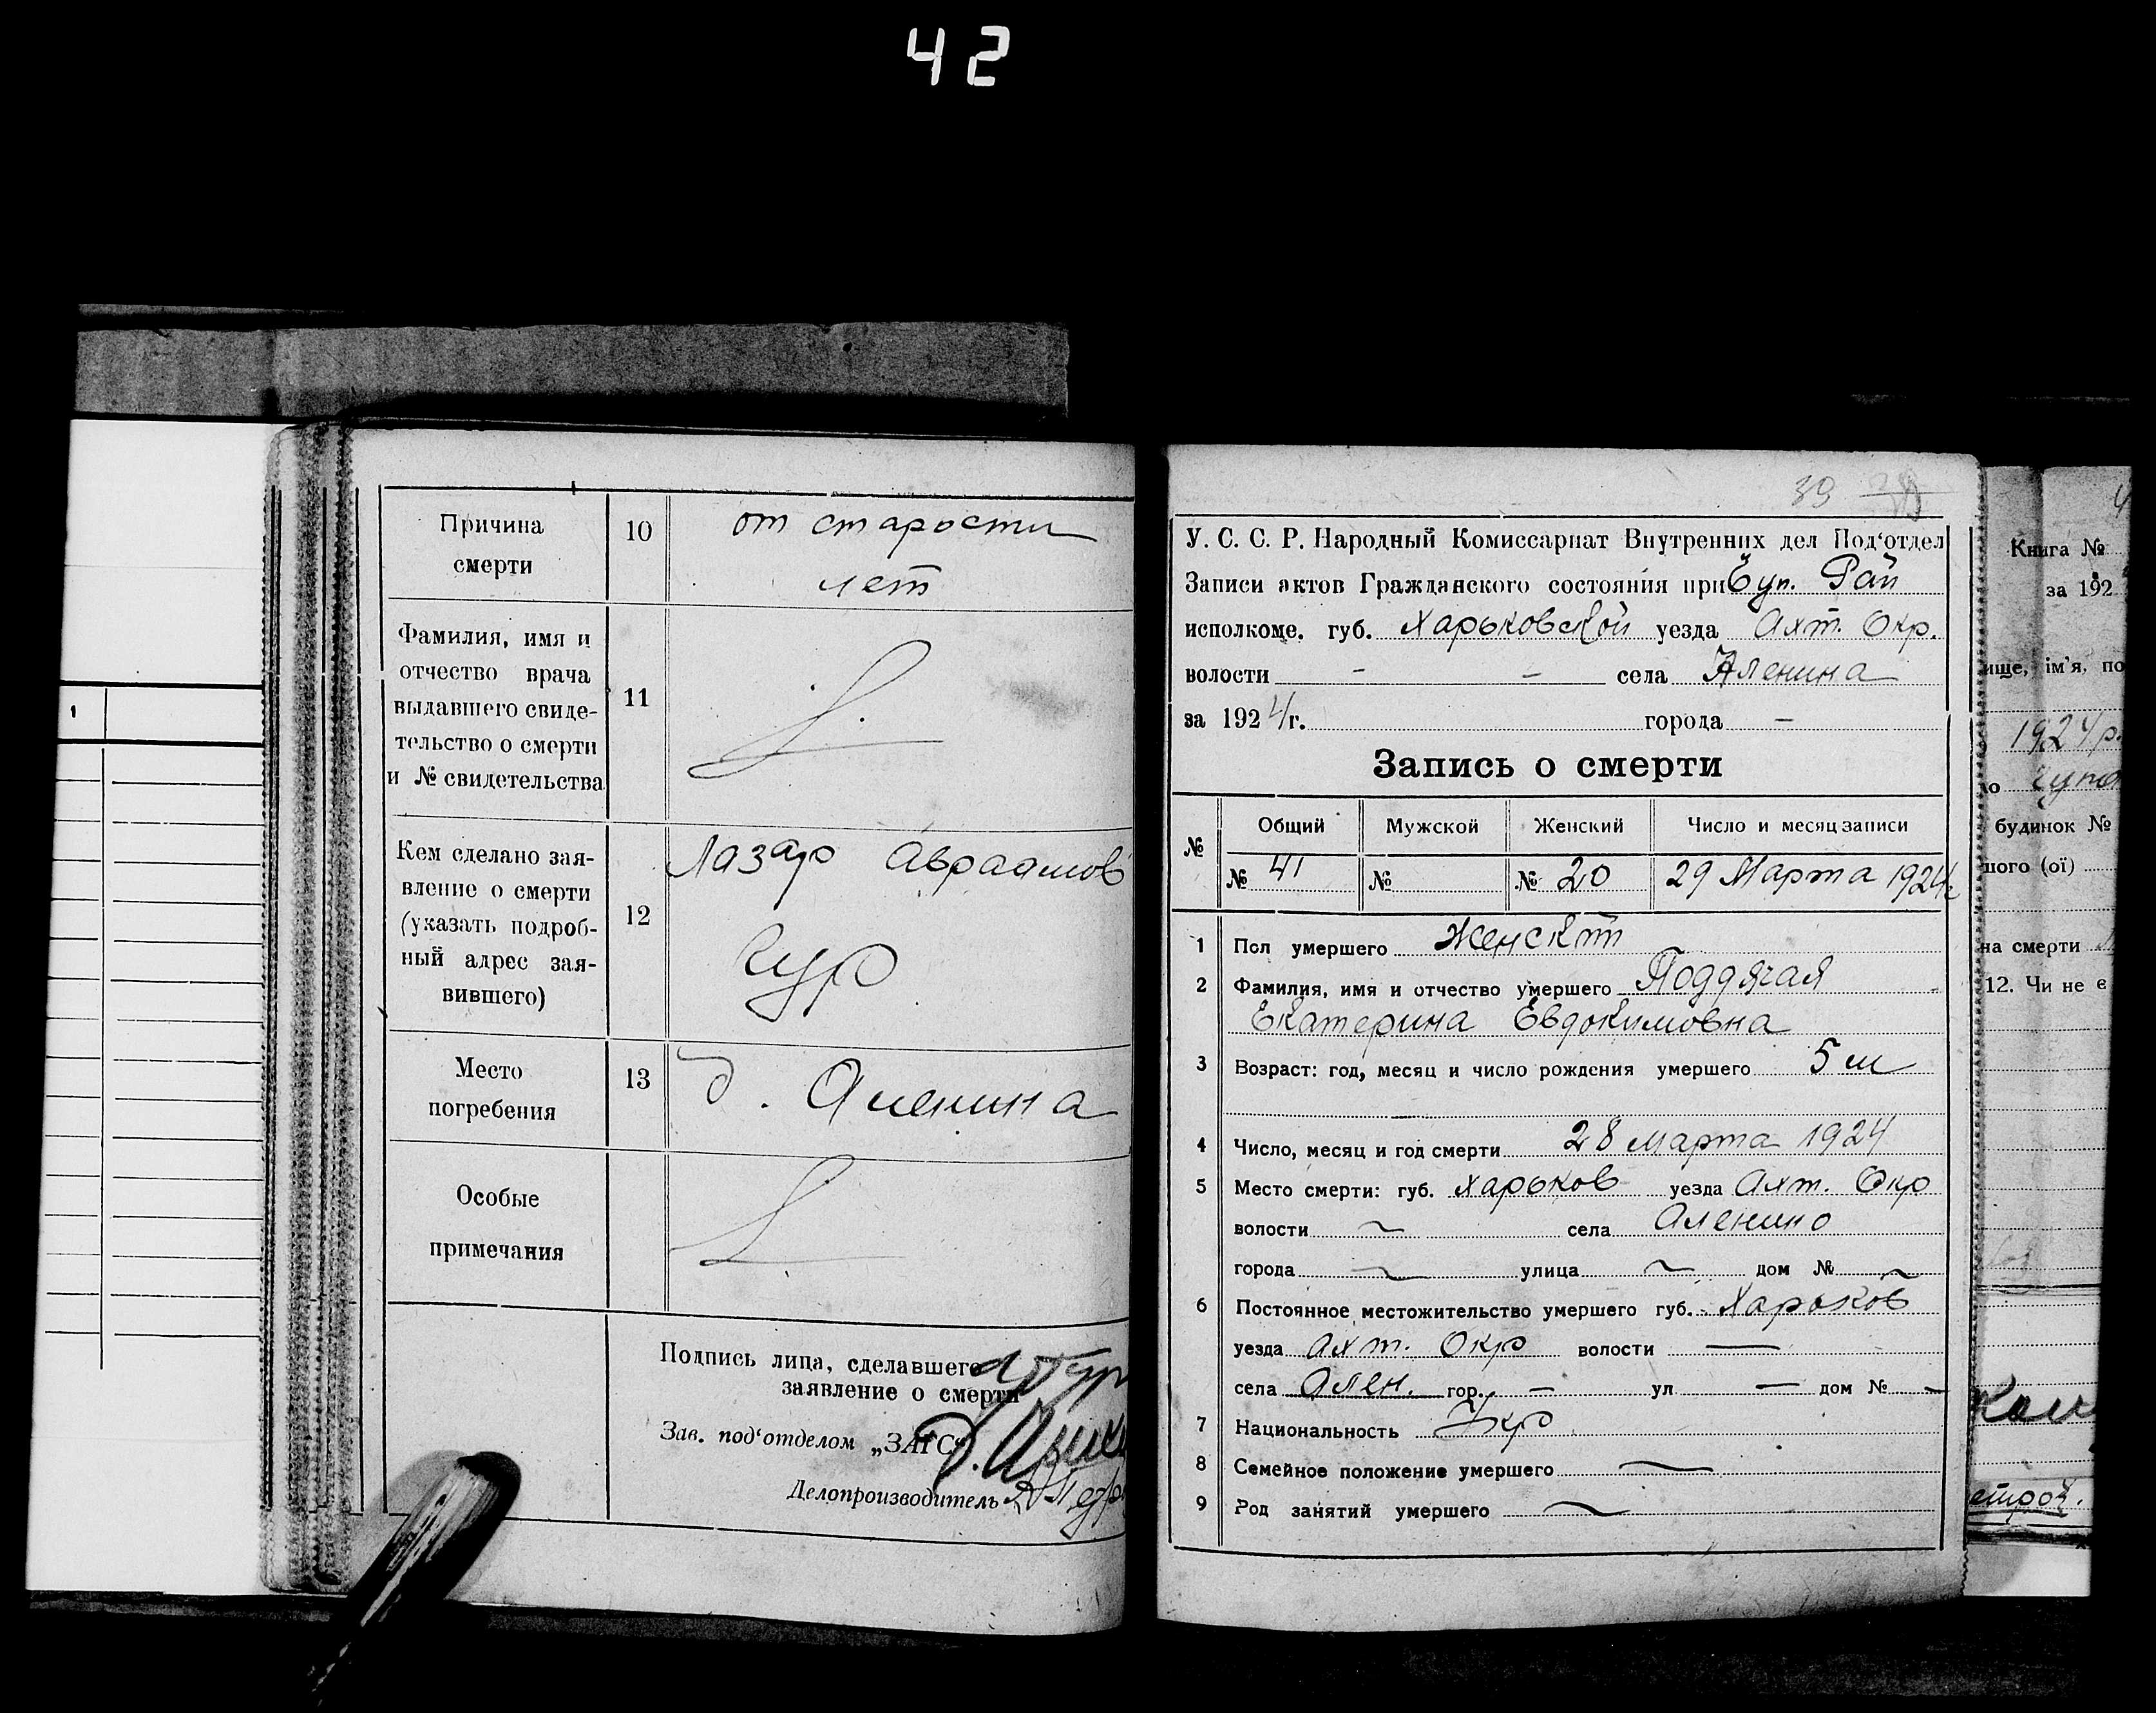 42
Причина
смерти
10
от старости
лет
Фамилия, имя и
отчество врача
выдавшего свиде-
тельство о смерти
и № свидетельства
11
Кем сделано зая-
вление о смерти
(указать подроб-
ный адрес зая-
вившего)
12
Лазар Авраамов
Гур
Место
погребения
13
д. Аленина
Особые
примечания
Подпись лица, сделавшего
заявление о смерти
Зав. под‘отделом „ЗАГС“
Делопроизводитель
1
39
У. С. С. Р. Народный Комиссариат Внутренних дел Под‘отдел
Записи актов Гражданского состояния при Буп. Рай
исполкоме. губ. Харьковской уезда Ахт. Окр.
волости - - села Аленина
за 1924 г. города -
Запись о смерти
№ Общий Мужской Женский Число и месяц записи
№ 41 № № 20 29 Марта 1924 г
1 Пол умершего
2 Фамилия, имя и отчество умершего Поддячая
Екатерина Евдокимовна
3 Возраст: год, месяц и число рождения умершего 5 м
4 Число, месяц и год смерти 28 марта 1924
5 Место смерти: губ. Харьков уезда Ахт. Окр
волости села Аленино
города улица дом №
6 Постоянное местожительство умершего губ. Харьков
уезда Ахт. Окр волости —
села Ален. гор. — ул — дом № —
7 Национальность Укр
8 Семейное положение умершего
9 Род занятий умершего
Книга №
за 192
ище, ім'я, по
1924 р.
будинок №
ного (ої)
на смерти
12. Чи не є